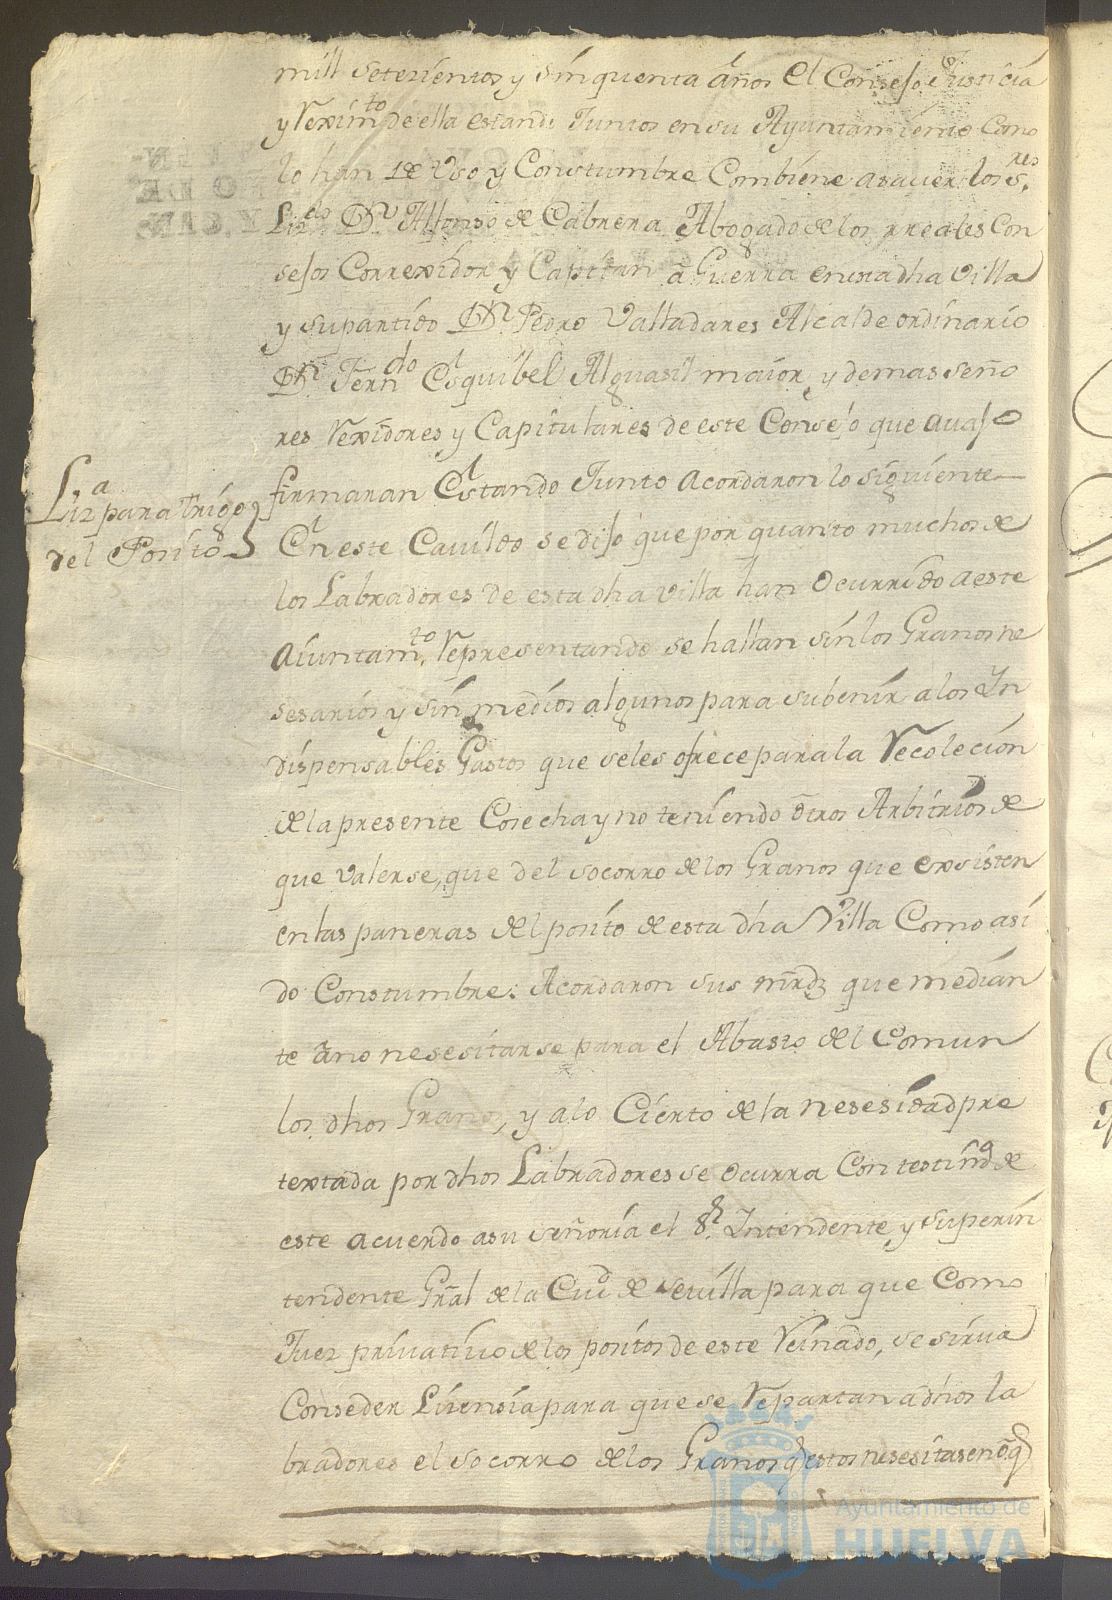 mill seterientos y sinquenta años el Consejo Justicia
y Reximto de ella estando Juntos en su Ayuntamiento Como
lo han de Uso y Constumbre Combiene asaver los Sres
Lizdo Dn Alfonso de Cabrera Abogado de los rreales Con
sejos Correxidor y Capitan a Guerra en esta dha villa
y su partido Dn Pedro Valladares Alcalde ordinario
Dn Ferndo Esquibel Alguasil maior y demas seño
res Rexidores y Capitulares de este Consejo que avajo
firmaran Estando Junto acordaron lo siguiente
Liza para trigo
del Posito
En este Cavildo se dijo que por quanto muchos de
los Labradores de esta dha villa han Ocurrido a este
Aiuntamto Representando se hallan sin los Granos ne
sesarios y sin medios algunos para subenir a los In
dispensables Gastos que se les ofrece para la Recolecion
de la presente Cosecha y no teniendo otros Arbitrios de
que valerse, que del socorro de los Granos que exsisten
en las paneras del posito de esta dha Villa Como asi
do Constumbre: Acordaron sus mrdz que median
te ano nesesitarse para el Abasto del Comun
los dhos Granos, y alo Cierto de la nesesidad pre
textada por dhos Labradores se ocurra Con testimo de
este acuerdo a su señoria el Sr Intendente y superin
tendente Gral de la Ciud de sevilla para que Como
Juez privativo de los positos de este Reinado, se sirva
Conseder Lizensia para que se Repartan a dhos la
bradores el socorro de los Granos q estos nesesitasen
Ayuntamiento de
HUELVA